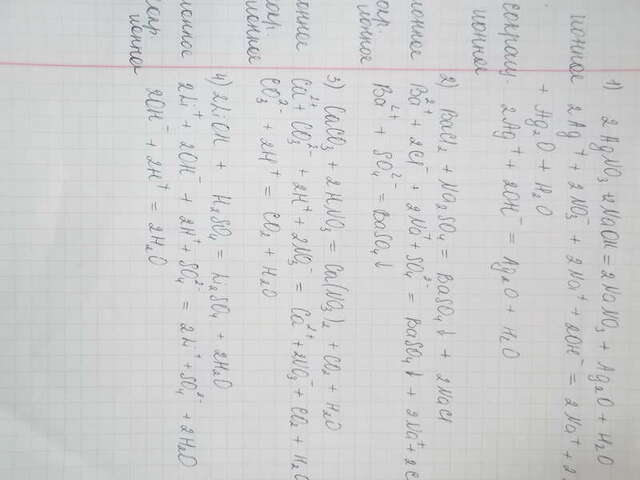 1) 2AgNO₃ + 2NaOH = 2NaNO₃ + Ag₂O + H₂O
ионное 2Ag⁺ + 2NO₃⁻ + 2Na⁺ + 2OH⁻ = 2Na⁺ + 2
+ Ag₂O + H₂O
сокращ. 2Ag⁺ + 2OH⁻ = Ag₂O + H₂O
ионное
2) BaCl₂ + Na₂SO₄ = BaSO₄↓ + 2NaCl
ионное Ba²⁺ + 2Cl⁻ + 2Na⁺ + SO₄²⁻ = BaSO₄↓ + 2Na⁺ + 2C
Ba²⁺ + SO₄²⁻ = BaSO₄↓
ионное
3) CaCO₃ + 2HNO₃ = Ca(NO₃)₂ + CO₂ + H₂O
Ca²⁺ + CO₃²⁻ + 2H⁺ + 2NO₃⁻ = Ca²⁺ + 2NO₃⁻ + CO₂ + H₂O
CO₃²⁻ + 2H⁺ = CO₂ + H₂O
ионное
4) 2LiOH + H₂SO₄ = Li₂SO₄ + 2H₂O
ионное 2Li⁺ + 2OH⁻ + 2H⁺ + SO₄²⁻ = 2Li⁺ + SO₄²⁻ + 2H₂O
сокр. 2OH⁻ + 2H⁺ = 2H₂O
ионное